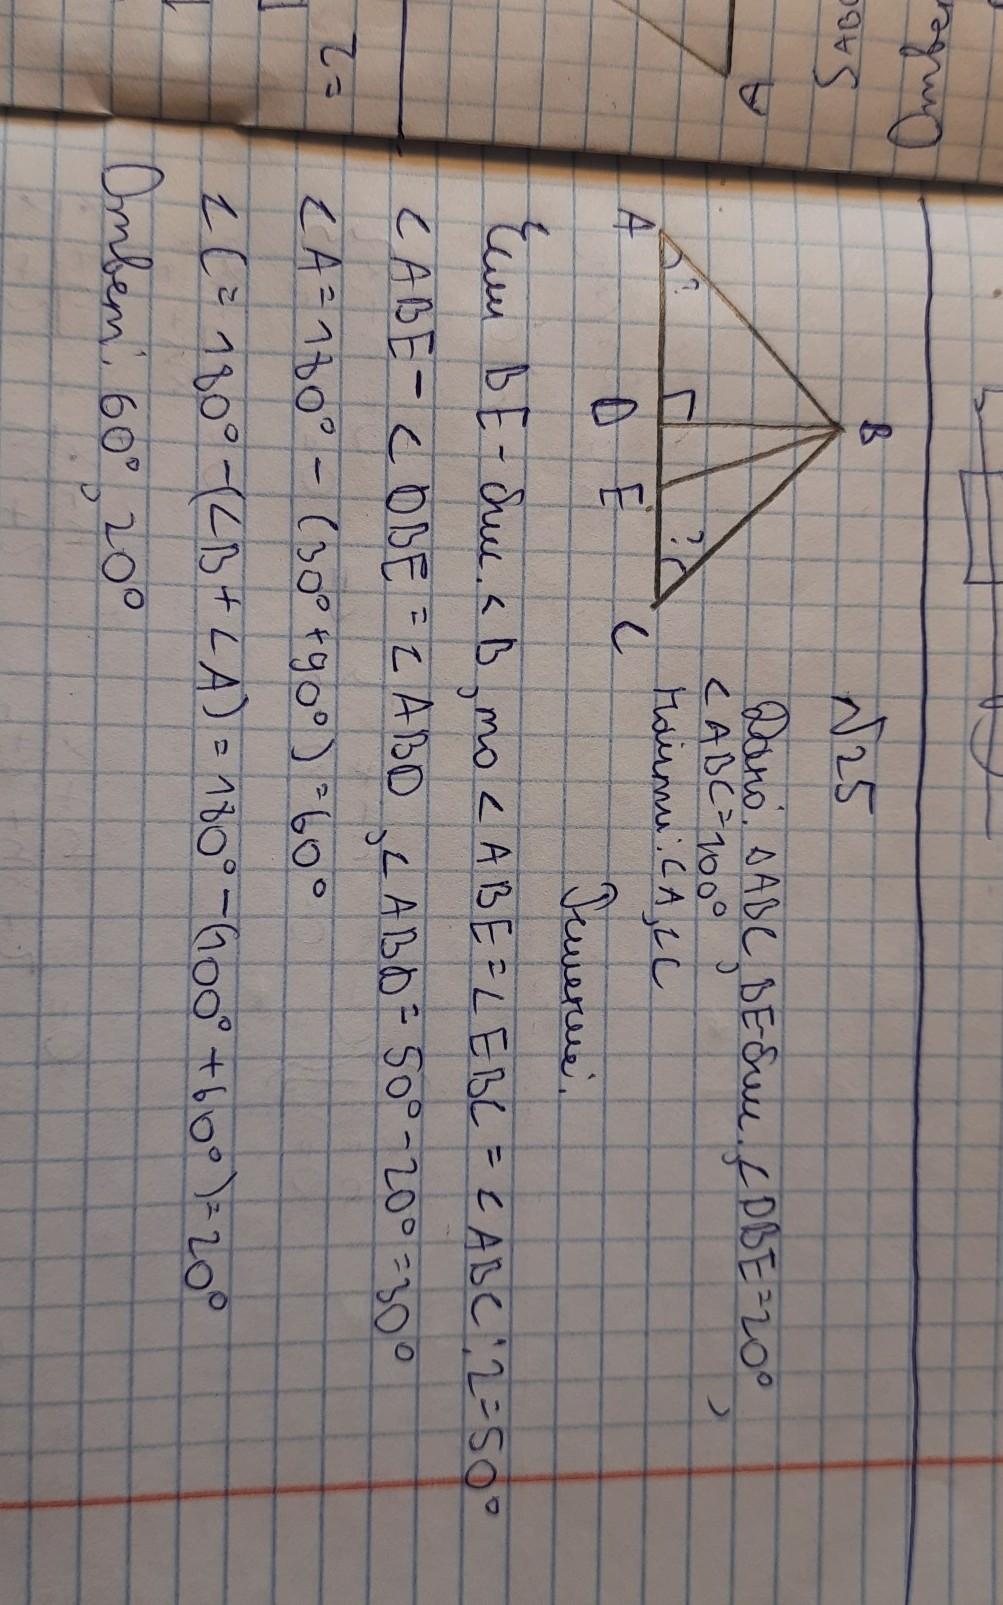 S ABC
Ответ
A
∠ =
N 25
B
A
?
D
E
?
C
Дано: ΔABC, BE-бис., ∠DBE=20°,
∠ABC=100°
Найти: ∠A, ∠C
Решение:
Если BE - бис. ∠B, то ∠ABE=∠EBC=∠ABC:2=50°
∠ABE-∠DBE=∠ABD, ∠ABD=50°-20°=30°
∠A=180°-(30°+90°)=60°
∠C=180°-(∠B+∠A)=180°-(100°+60°)=20°
Ответ: 60°, 20°